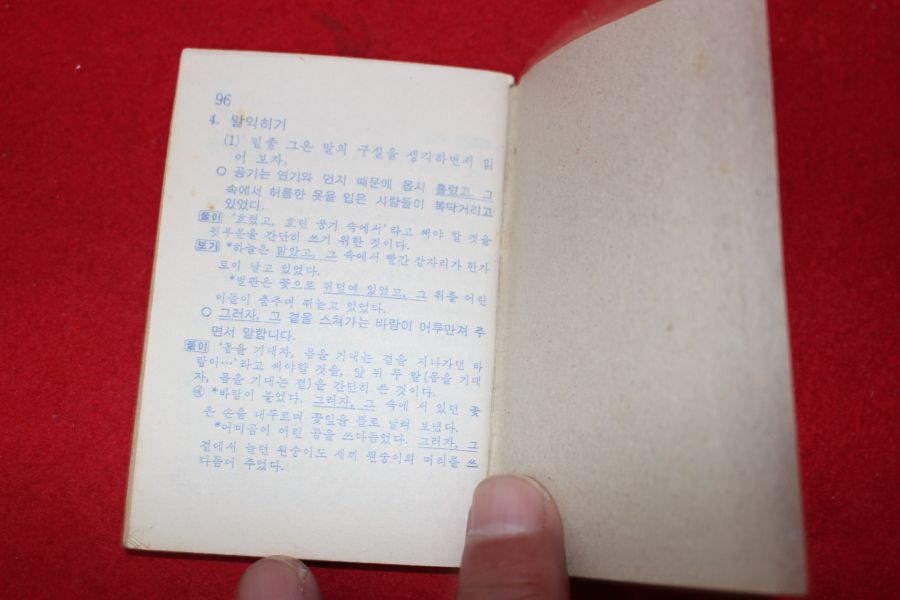 96
4. 말익히기
(1) 밑줄 그은 말의 구실을 생각하면서 읽
어 보자.
○ 공기는 연기와 먼지 때문에 몹시 흘렸고, 그
속에서 허름한 옷을 입은 사람들이 복닥거리고
있었다.
풀이 '흐렸고, 흐린 공기 속에서'라고 써야 할 것을
뒷부분을 간단히 쓰기 위한 것이다.
보기 *하늘은 맑았고, 그 속에서 빨간 잠자리가 한가
로이 날고 있었다.
*벌판은 꽃으로 뒤덮여 있었고, 그 위를 어린
이들이 춤추며 뛰놀고 있었다.
○ 그러자, 그 곁을 스쳐가는 바람이 어루만져 주
면서 말합니다.
풀이 '몸을 기대자, 몸을 기대는 곁을 지나가던 바
람이…'라고 써야할 것을, 앞 뒤 두 말(몸을 기대
자, 몸을 기대는 곁)을 간단히 쓴 것이다.
*바람이 불었다. 그러자, 그 속에 서 있던 꽃
은 손을 내두르며 꽃잎을 들로 날려 보냈다.
*어미곰이 어린 곰을 쓰다듬었다. 그러자, 그
곁에서 놀던 원숭이도 새끼 원숭이의 머리를 쓰
다듬어 주었다.